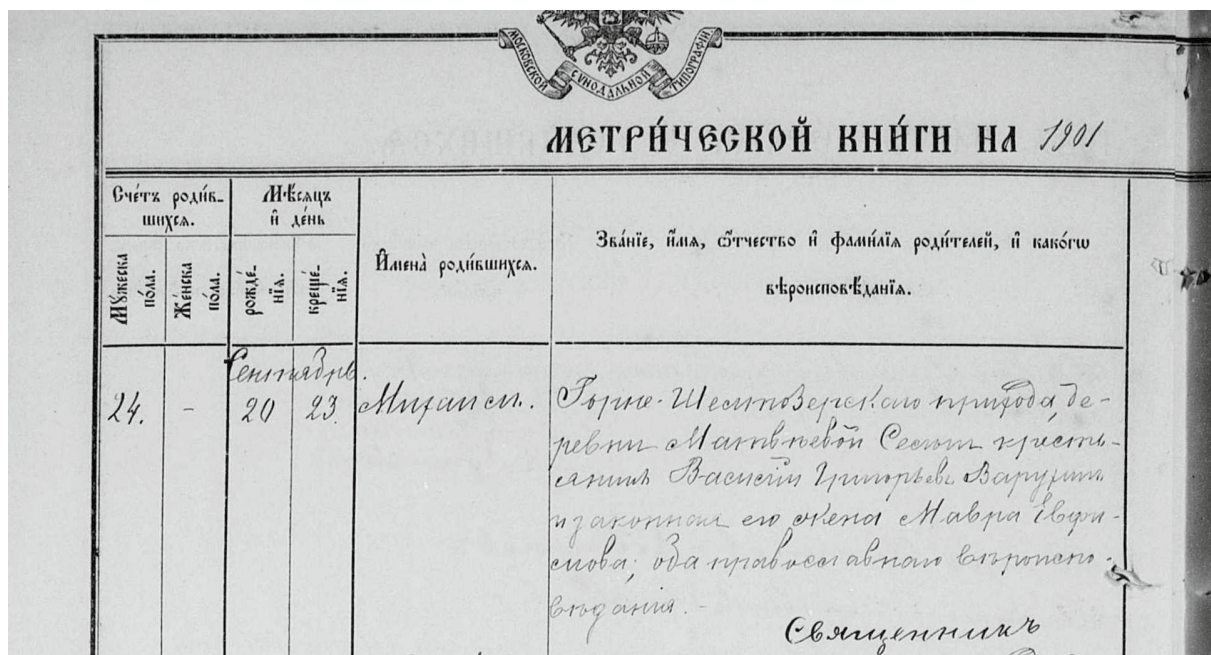 МОСКОВСКОЙ СУНОДАЛЬНОЙ ТИПОГРАФІИ
МЕТРИ́ЧЕСКОЙ КНИ́ГИ НА 1901
Сче́тъ роди́в-
шихся.
Мѣ́сяцъ
и҆ де́нь
Мꙋ́жеска
по́ла.
Же́нска
по́ла.
рожде́-
нїя.
креще́-
нїя.
И҆мена̀ роди́вшихся.
Зва́нїе, и҆́мя, ѻ҆́тчество и҆ фами́лїя роди́телей, и҆ како́гѡ
вѣроисповѣ́данїя.
Сентябрь.
24. - 20 23 Михаилъ. Горне-Шелтозерскаго прихода, де-
ревни Матвѣевой Сельги кресть-
янинъ Василій Григорьевъ
и законная его жена Мавра Евфи-
мова; оба православнаго вѣроиспо-
вѣданія. -
Священникъ